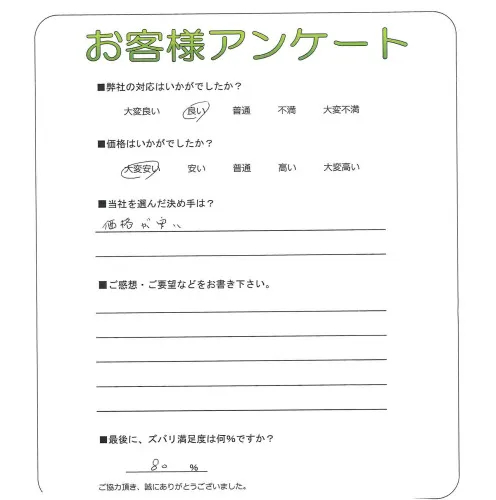 お客様アンケート
■弊社の対応はいかがでしたか？
大変良い 良い 普通 不満 大変不満
■価格はいかがでしたか？
大変安い 安い 普通 高い 大変高い
■当社を選んだ決め手は？
価格が安い
■ご感想・ご要望などをお書き下さい。
■最後に、ズバリ満足度は何%ですか？
80 %
ご協力頂き、誠にありがとうございました。